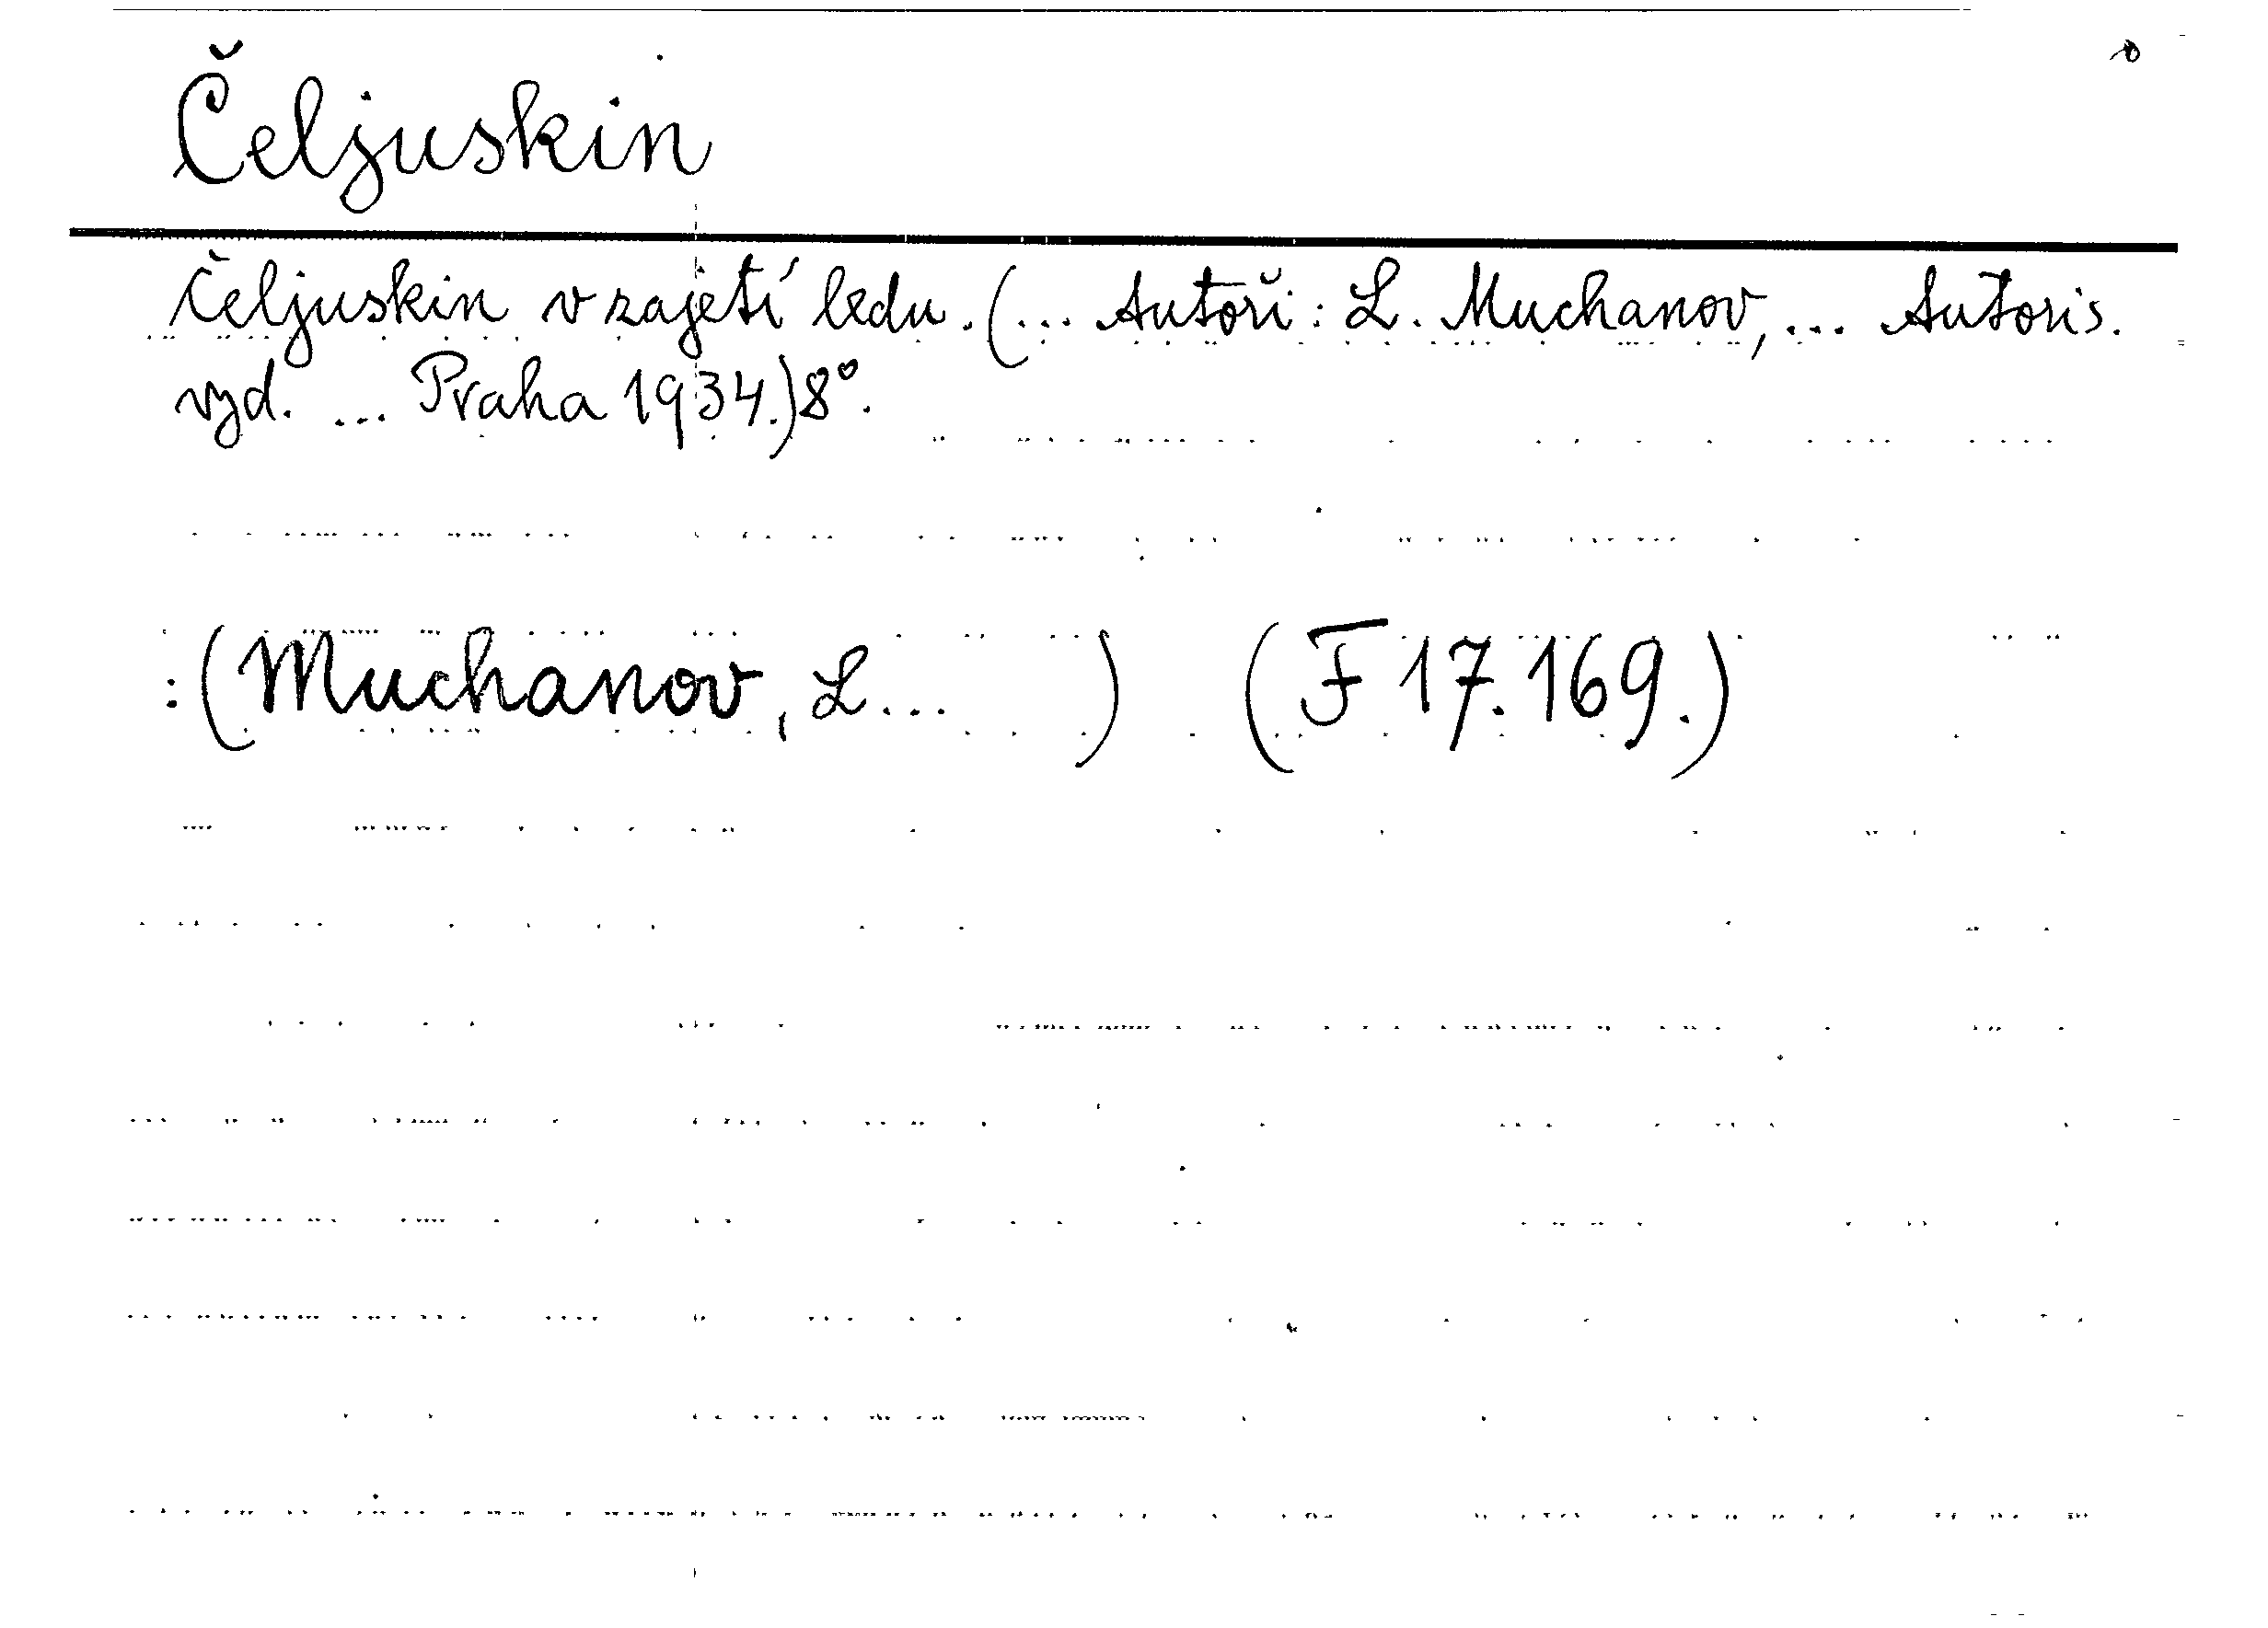 Čeljuskin
Čeljuskin v zajetí ledu. (... Autoři: L. Muchanov, ... Autoris.
vyd. ... Praha 1934.) 8°.
: (Muchanov, L... ) (F 17.169.)